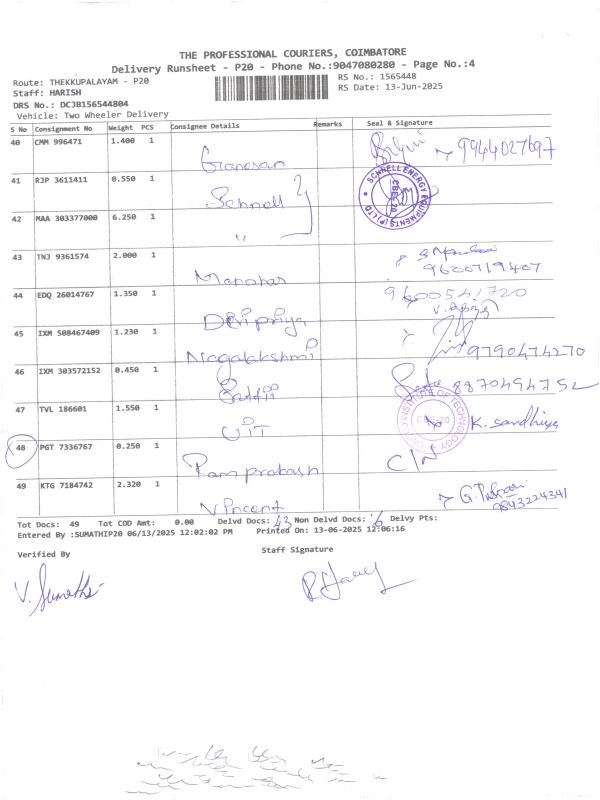 THE PROFESSIONAL COURIERS, COIMBATORE
Delivery Runsheet - P20 - Phone No.:9047080280 - Page No.:4
Route: THEKKUPALAYAM - P20
RS No.: 1565448
Staff: HARISH
RS Date: 13-Jun-2025
DRS No.: DCJB156544804
Vehicle: Two Wheeler Delivery
S No Consignment No Weight PCS Consignee Details Remarks Seal & Signature
40 CMM 996471 1.400 1 Ganesan 9944027697
41 RJP 3611411 0.550 1 Schnell
SCHNELL ENERGY EQUIPMENTS (P) LTD. CBE-20
42 MAA 303377000 6.250 1 "
43 TNJ 9361574 2.000 1 Manohar 9600719407
44 EDQ 26014767 1.350 1 Devipriya 9600541720
45 IXM 508467409 1.230 1 Nagalakshmi 9790474270
46 IXM 303572152 0.450 1 8870494752
47 TVL 186601 1.550 1 UIT K. Sandhiya
INSTITUTE OF TECHNOLOGY
48 PGT 7336767 0.250 1 Ramprakash C/N
49 KTG 7184742 2.320 1 Vincent 9843224341
Tot Docs: 49 Tot COD Amt: 0.00 Delvd Docs: 43 Non Delvd Docs: 6 Delvy Pts:
Entered By :SUMATHIP20 06/13/2025 12:02:02 PM Printed On: 13-06-2025 12:06:16
Verified By Staff Signature
V. Sumathi